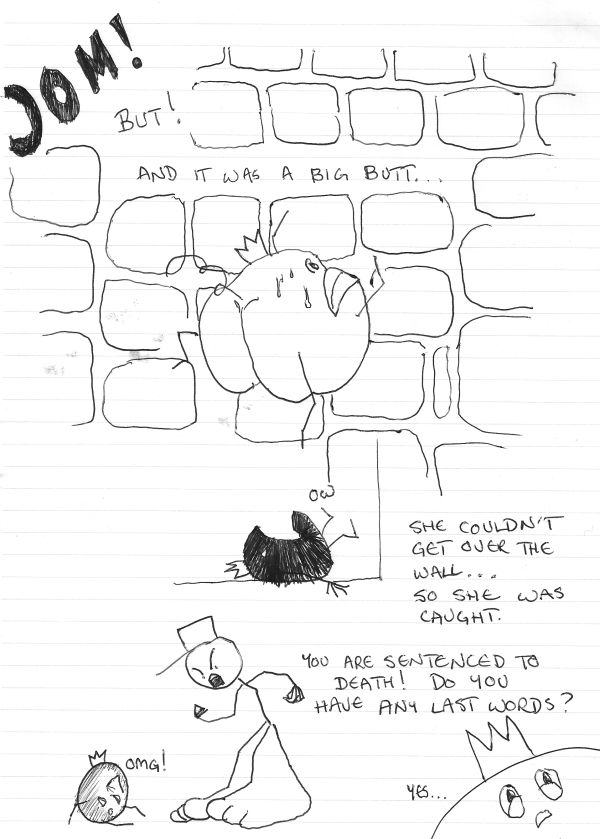 OOM!
BUT!
AND IT WAS A BIG BUTT...
OW
SHE COULDN'T
GET OVER THE
WALL...
SO SHE WAS
CAUGHT.
YOU ARE SENTENCED TO
DEATH! DO YOU
HAVE ANY LAST WORDS?
OMG!
YES...